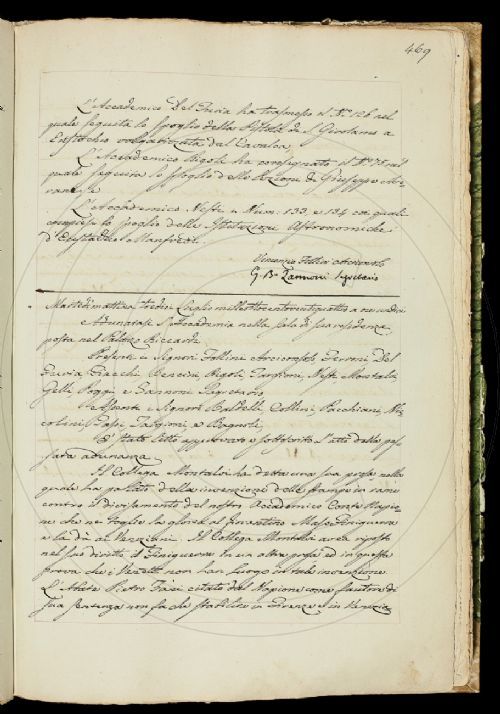 469
L'Accademico Del Furia ha trasmesso il N.º 126 nel
quale seguita lo spoglio della Pistola di S. Girolamo a
Eustochio volgarizzata dal Cavalca.
L'Accademico Rigoli ha consegnato il N.º 78 nel
quale seguita lo spoglio delle Azioni di Giuseppe Ave
rani, e
L'Accademico Nesti i Num. 133, e 134 coi quali
compiesce lo spoglio delle Istituzioni Astronomiche
d'Eustachio Manfredi.
Vincenzio Follini Arciconsolo
G. B.a Zannoni Segretario
Martedì mattina tredici Luglio milleottocentoventiquattro a ore undici
Adunatasi l'Accademia nella sala di sua residenza
posta nel Palazzo Riccardi.
Presenti i Signori Follini Arciconsolo Ferroni Del
Furia Ciacchi Bencini Rigoli Targioni, Nesti Montalvi
Gelli Poggi e Zannoni Segretario
Assenti i Signori Baldelli, Collini, Pacchiani, Nic
colini, Papi, Targioni, e Bagnoli,
E' stato letto approvato e sottoscritto l'atto della pas
sata adunanza
Il Collega Montalvi ha detta una sua prosa, nella
quale ha parlato della invenzione delle stampe in rame
contro il divisamento del nostro Accademico Conte Napio
ne che ne toglie la gloria al fiorentino Maso Finiguerra
e la dà ai Veneziani. Il Collega Montalvi avea riposto
nel suo diritto il Finiguerra in un'altra prosa ed in questa
prova che i Veneti non han luogo in tale invenzione
L'Abate Pietro Zani citato dal Napione come fautore di
sua sentenza non fa che stabilire in Firenze e in Venezia